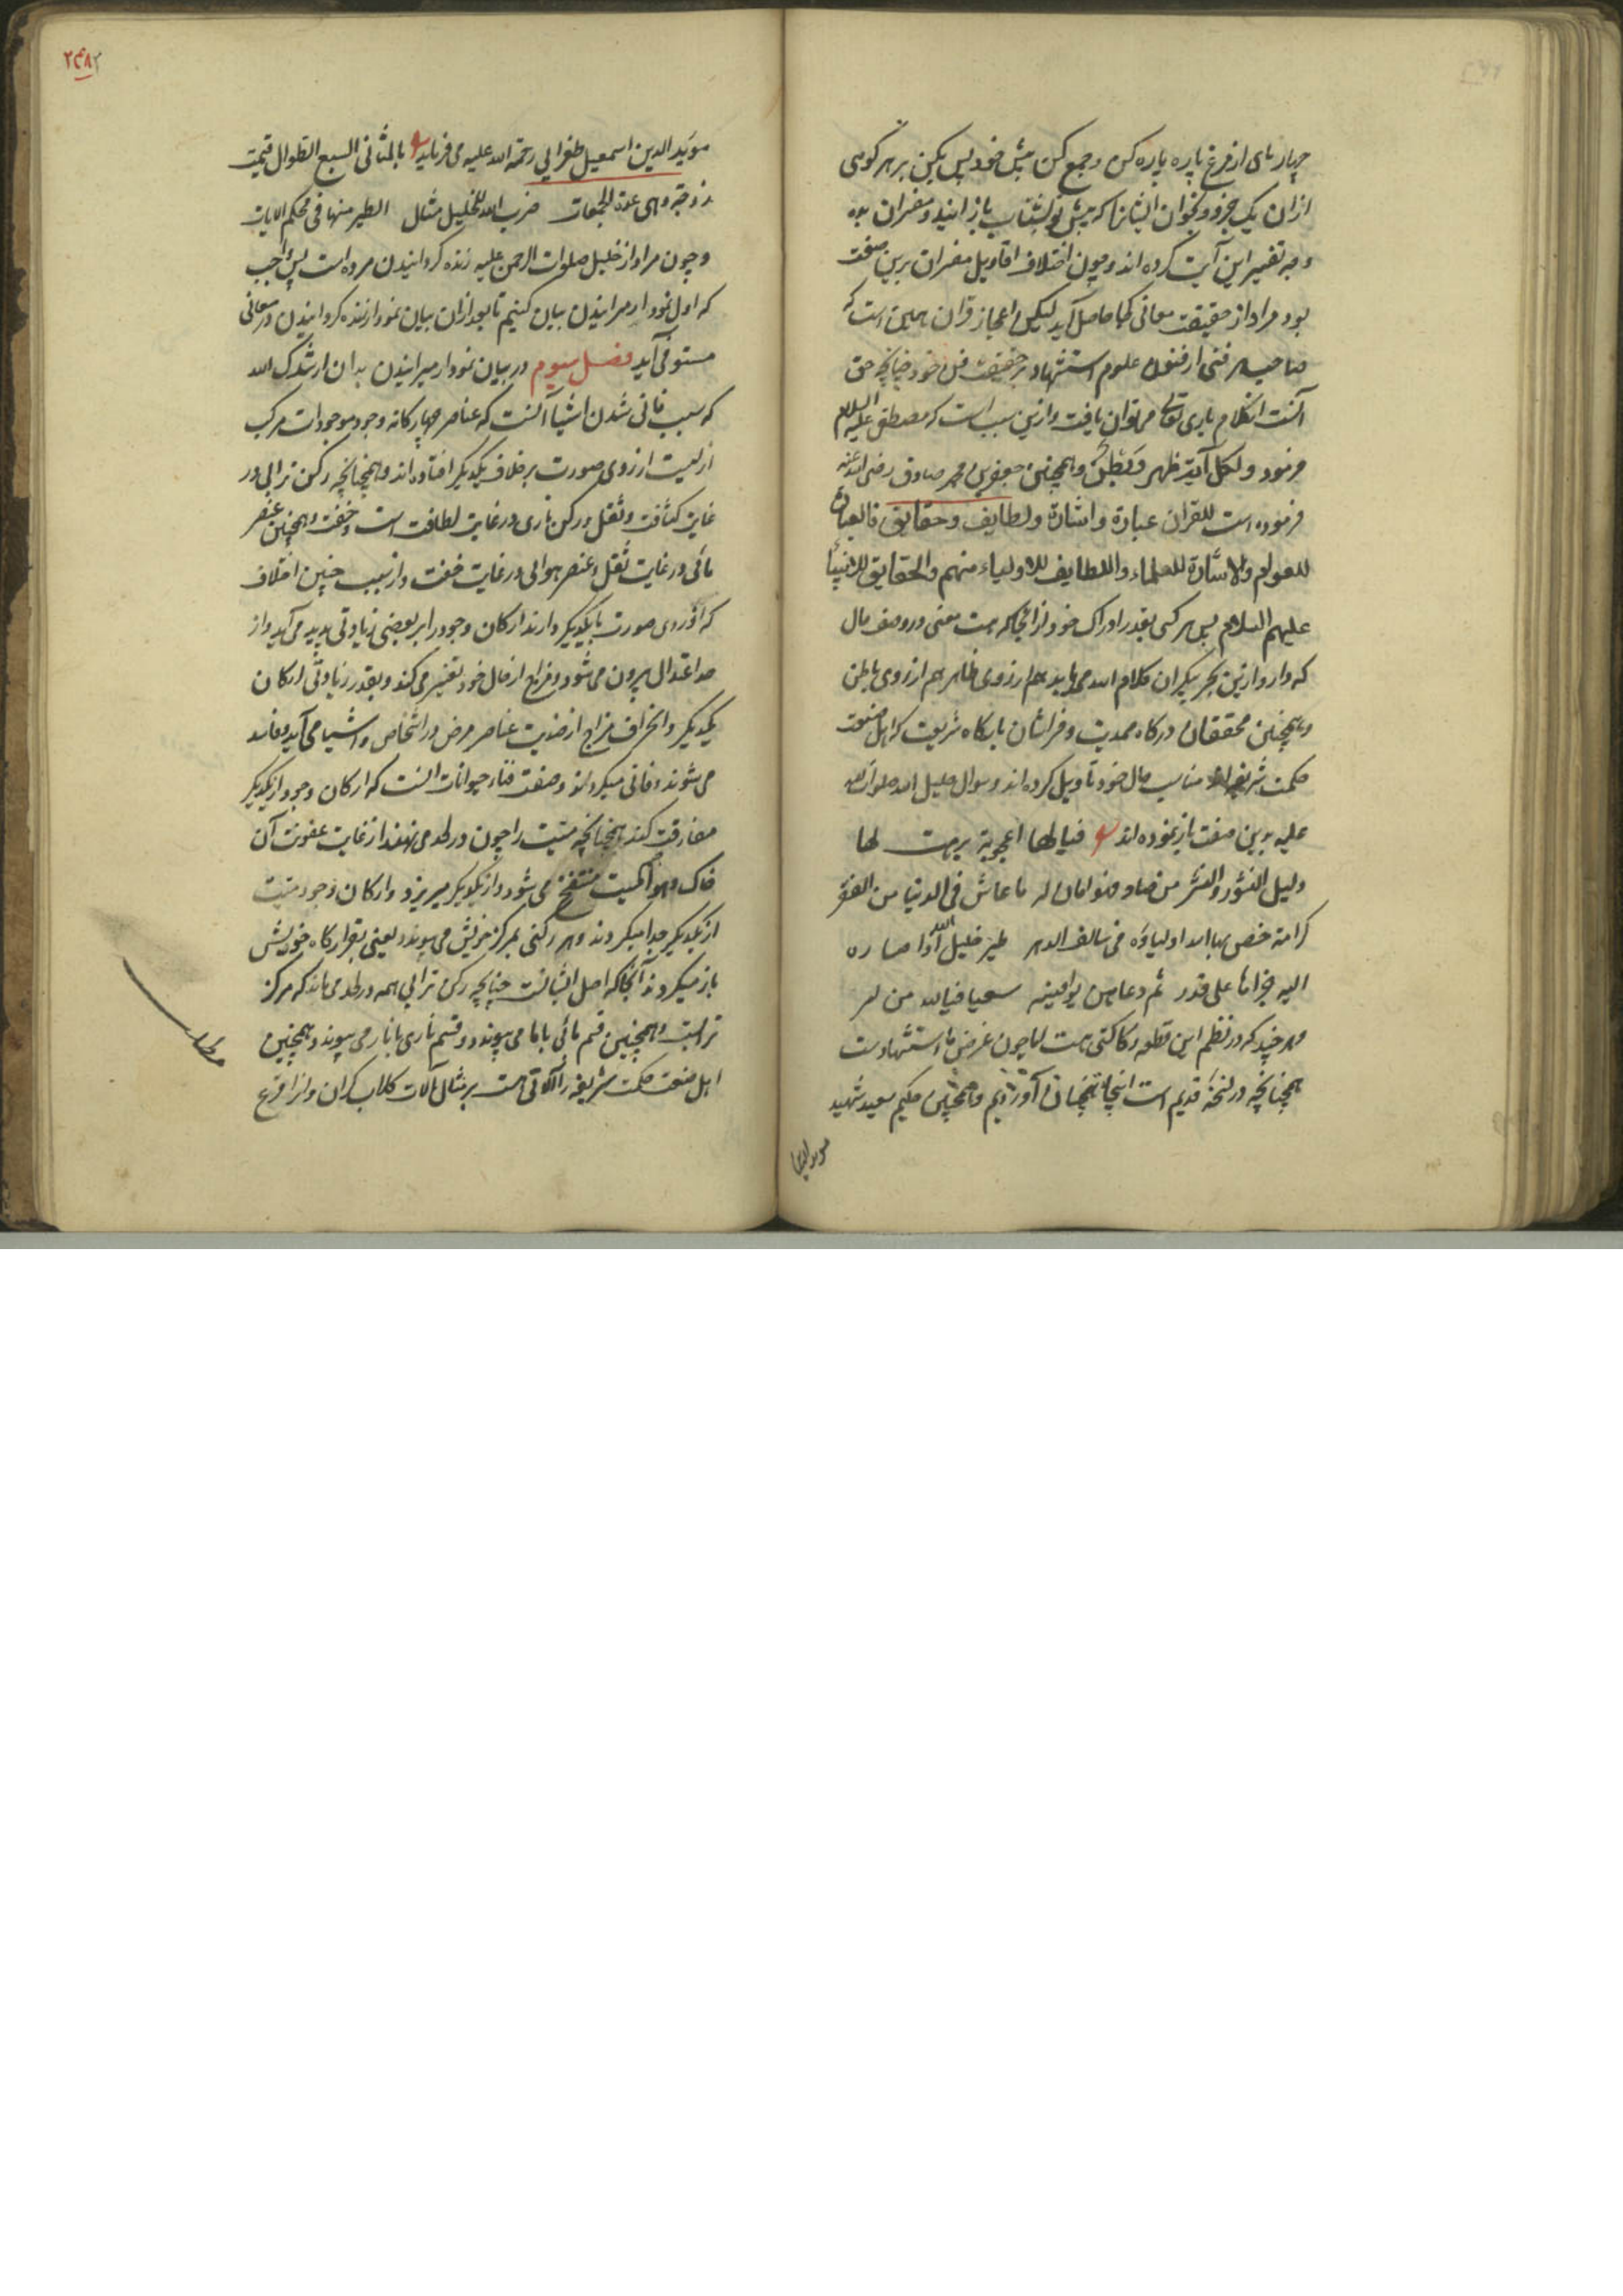 چهار تای از مرغ پاره پاره کن و جمع کن پیش خود پس بکن بر هر کوهی
از ان یک جزو و بخوان ایشانرا که پیش تو بشتاب باز ایند و مفسران
تفسیر این آیت کرده اند و چون اختلاف اقاویل مفسران برین صفت
بود مراد از حقیقت معانی کجا حاصل آید لیکن اعجاز قران همین است که
صاحب هر فنی از فنون علوم استشهاد بر حقیقت فن خود چنانچه حق
آنست از کلام باری تعالی می توان یافت و ازین سبب است که مصطفی علیه السلام
فرمود ولکل آیة ظهر و بطن و همچنین جعفر بن محمد صادق رضی الله عنه
فرموده است للقران عبارة واشارة ولطایف وحقایق فالعبارة
للعوام والاشارة للعلماء واللطایف للاولیاء منهم والحقایق للانبیاء
علیهم السلام پس هر کس بقدر ادراک خود از انجا که هست معنی در وصف حال
که دارد ازین بحر بیکران کلام الله می یابد هم از روی ظاهر هم از روی باطن
و همچنین محققان درکاه صمدیت و فراشان بارکاه شریعت که اهل صنعت
حکمت شریفه اند مناسب حال خود تأویل کرده اند و سوال خلیل الله صلوات الله
علیه بدین صفت باز نموده اند فیالها اعجوبة برهت لها
دلیل النشور والنشر من صادفنوا مان له ما عاش فی الدنیا من الفقر
کرامة خص بها الله اولیاؤه فی سالف الدهر طیر خلیل الله اذا صاره
الیه جزاءها علی قدر ثم دعاهن یوافینه سعیا فیالله من سر
و هر چند که در نظم این قطعه رکاکتی هست اما چون غرض ما استشهادست
همچنانچه در نسخهٔ قدیم است اینجا همچنان آوردیم و همچنین حکیم سعید شهید
موید الدین
۲۴۸
موید الدین اسمعیل طغرایی رحمة الله علیه می فرماید بالمثانی السبع الطوال قیمت
زوجة وهی عدة الجمعات ضرب الله للخلیل مثال الطیر منها فی محکم الایات
و چون مراد از خلیل صلوات الرحمن علیه زنده کردانیدن مرده است پس واجب
که اول نمودار میرانیدن بیان کنیم تا بعد ازان بیان نمودار زنده کردانیدن در معانی
مستوفی آید فصل سیوم در بیان نمودار میرانیدن بدان ارشدک الله
که سبب فانی شدن اشیا آنست که عناصر چهار کانه وجود موجودات مرکب
ازلیست از روی صورت برخلاف یکدیکر افتاده اند و همچنانچه رکن ترابی در
غایت کثافت و ثقل و رکن ناری در غایت لطافت است و خفت و همچنین عنصر
مائی در غایت ثقل و عنصر هوایی در غایت خفت و از سبب چنین اختلاف
که از روی صورت با یکدیکر دارند ارکان وجود را بر بعضی زیادتی پدید می آید و از
حد اعتدال بیرون می شود و مزاج از حال خود تغییر می کند و بقدر زیادتی ارکان
یکدیکر و انحراف مزاج از ضدیت عناصر مرض در اشخاص و اشیا می آید و فاسد
می شوند و فانی میکردند و صفت فناء حیوانات آنست که ارکان وجود از یکدیکر
مفارقت کنند همچنانچه میت را چون در لحد می نهند از غایت عفونت آن
خاک و هوا میت منتفخ می شود و از یکدیکر میریزد و ارکان وجود میت
از یکدیکر جدا میکردند و هر رکنی بمرکز خویش می پیوندد یعنی بقرارکاه خویش
باز میکردند آنجا که اصل ایشانست چنانچه رکن ترابی همه در لحد می ماند که مرکز
ترابست و همچنین قسم مائی بما می پیوندد و قسم ناری بنار می پیوندد و همچنین
اهل صنعت حکمت شریفه را آلاتی هست بر مثال آلات کلاب کران و انرا قرع